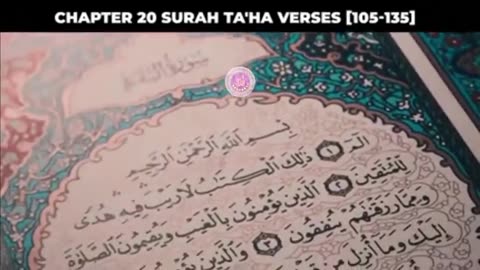 CHAPTER 20 SURAH TA'HA VERSES [105-135]
سُورَةُ
بِسْمِ ٱللَّهِ ٱلرَّحْمَٰنِ ٱلرَّحِيمِ
الٓمٓ ١ ذَٰلِكَ ٱلْكِتَٰبُ لَا رَيْبَ فِيهِ هُدًى
لِّلْمُتَّقِينَ ٢ ٱلَّذِينَ يُؤْمِنُونَ بِٱلْغَيْبِ وَيُقِيمُونَ ٱلصَّلَوٰةَ
وَمِمَّا رَزَقْنَٰهُمْ يُنفِقُونَ ٣ وَٱلَّذِينَ
إِلَيْكَ وَمَآ أُنزِلَ مِن